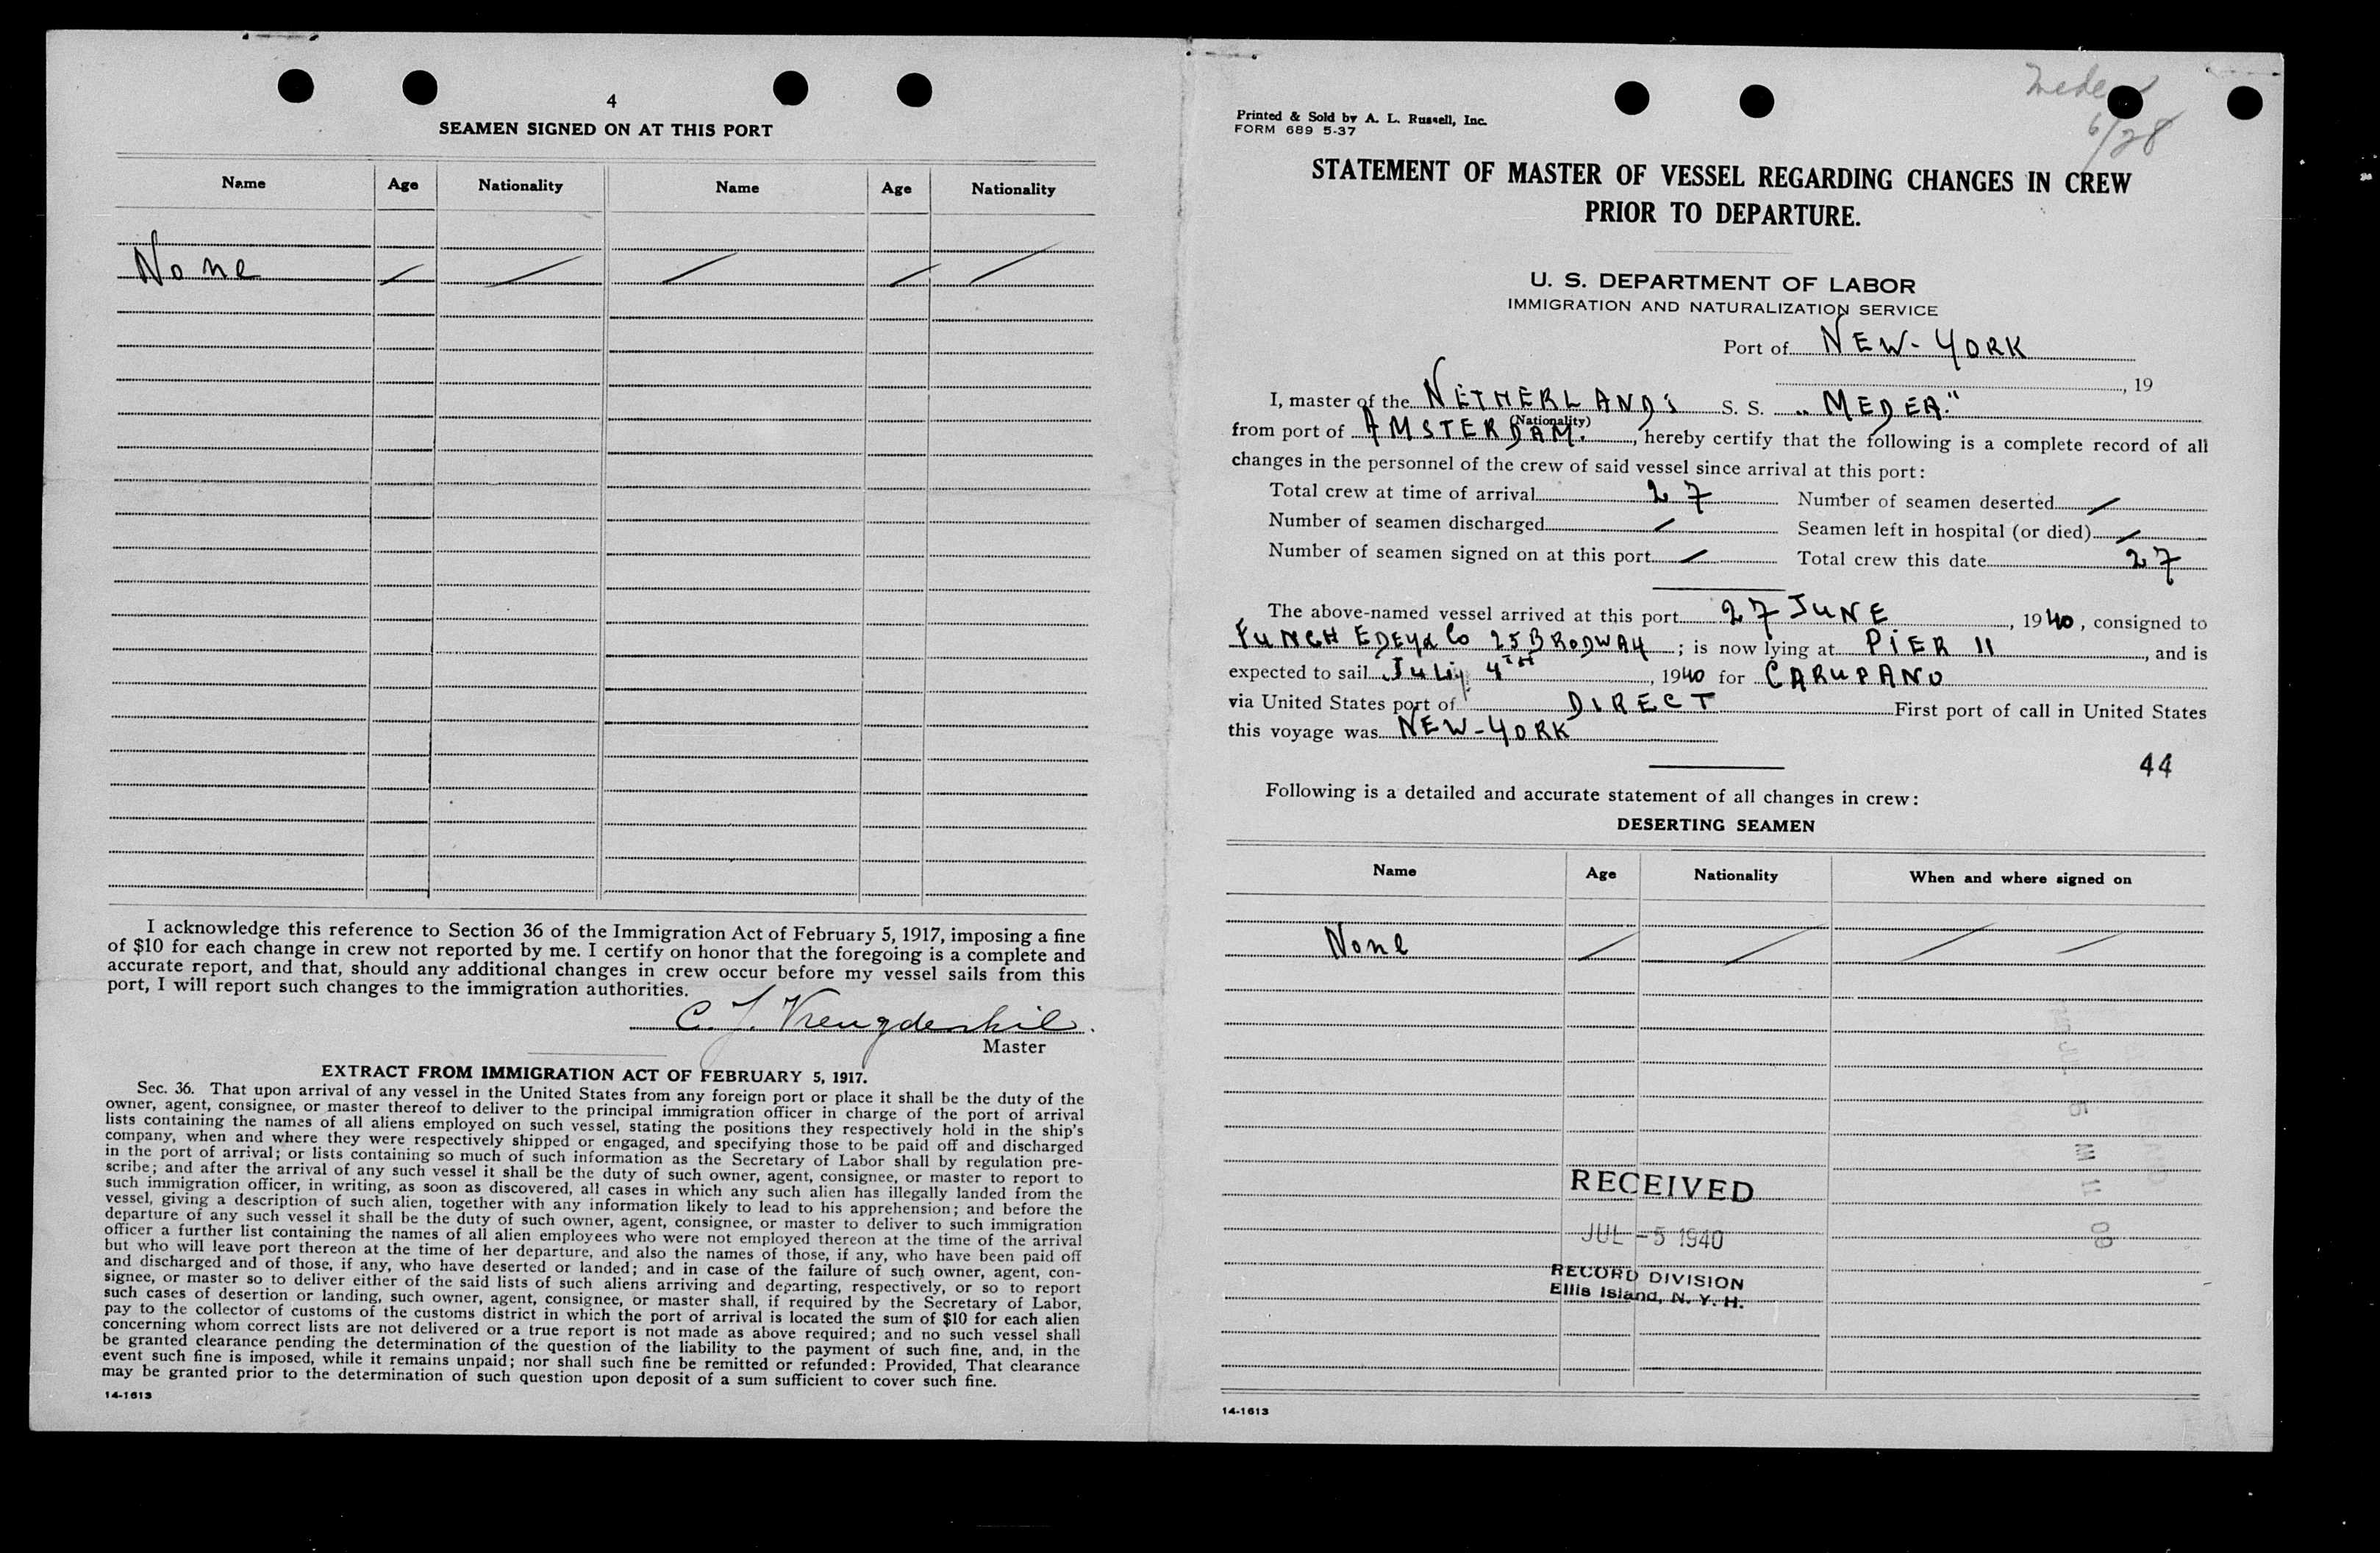 4
SEAMEN SIGNED ON AT THIS PORT
Name Age Nationality Name Age Nationality
None
I acknowledge this reference to Section 36 of the Immigration Act of February 5, 1917, imposing a fine
of $10 for each change in crew not reported by me. I certify on honor that the foregoing is a complete and
accurate report, and that, should any additional changes in crew occur before my vessel sails from this
port, I will report such changes to the immigration authorities.
C. J. Vreugdenhil
Master
EXTRACT FROM IMMIGRATION ACT OF FEBRUARY 5, 1917.
Sec. 36. That upon arrival of any vessel in the United States from any foreign port or place it shall be the duty of the
owner, agent, consignee, or master thereof to deliver to the principal immigration officer in charge of the port of arrival
lists containing the names of all aliens employed on such vessel, stating the positions they respectively hold in the ship's
company, when and where they were respectively shipped or engaged, and specifying those to be paid off and discharged
in the port of arrival; or lists containing so much of such information as the Secretary of Labor shall by regulation pre-
scribe; and after the arrival of any such vessel it shall be the duty of such owner, agent, consignee, or master to report to
such immigration officer, in writing, as soon as discovered, all cases in which any such alien has illegally landed from the
vessel, giving a description of such alien, together with any information likely to lead to his apprehension; and before the
departure of any such vessel it shall be the duty of such owner, agent, consignee, or master to deliver to such immigration
officer a further list containing the names of all alien employees who were not employed thereon at the time of the arrival
but who will leave port thereon at the time of her departure, and also the names of those, if any, who have been paid off
and discharged and of those, if any, who have deserted or landed; and in case of the failure of such owner, agent, con-
signee, or master so to deliver either of the said lists of such aliens arriving and departing, respectively, or so to report
such cases of desertion or landing, such owner, agent, consignee, or master shall, if required by the Secretary of Labor,
pay to the collector of customs of the customs district in which the port of arrival is located the sum of $10 for each alien
concerning whom correct lists are not delivered or a true report is not made as above required; and no such vessel shall
be granted clearance pending the determination of the question of the liability to the payment of such fine, and, in the
event such fine is imposed, while it remains unpaid; nor shall such fine be remitted or refunded: Provided, That clearance
may be granted prior to the determination of such question upon deposit of a sum sufficient to cover such fine.
14-1613
Printed & Sold by A. L. Russell, Inc.
FORM 689 5-37
6/28
STATEMENT OF MASTER OF VESSEL REGARDING CHANGES IN CREW
PRIOR TO DEPARTURE.
U. S. DEPARTMENT OF LABOR
IMMIGRATION AND NATURALIZATION SERVICE
Port of NEW-YORK
, 19
I, master of the NETHERLANDS S. S. „MEDEA."
(Nationality)
from port of AMSTERDAM. , hereby certify that the following is a complete record of all
changes in the personnel of the crew of said vessel since arrival at this port:
Total crew at time of arrival 27 Number of seamen deserted /
Number of seamen discharged / Seamen left in hospital (or died) /
Number of seamen signed on at this port / Total crew this date 27
The above-named vessel arrived at this port 27 JUNE , 1940, consigned to
FUNCH EDEY & Co 25 BRODWAY ; is now lying at PIER 11 , and is
expected to sail July 4TH , 1940 for CARUPANO
via United States port of DIRECT First port of call in United States
this voyage was NEW-YORK
44
Following is a detailed and accurate statement of all changes in crew:
DESERTING SEAMEN
Name Age Nationality When and where signed on
None
RECEIVED
JUL -5 1940
RECORD DIVISION
Ellis Island, N. Y. H.
14-1613